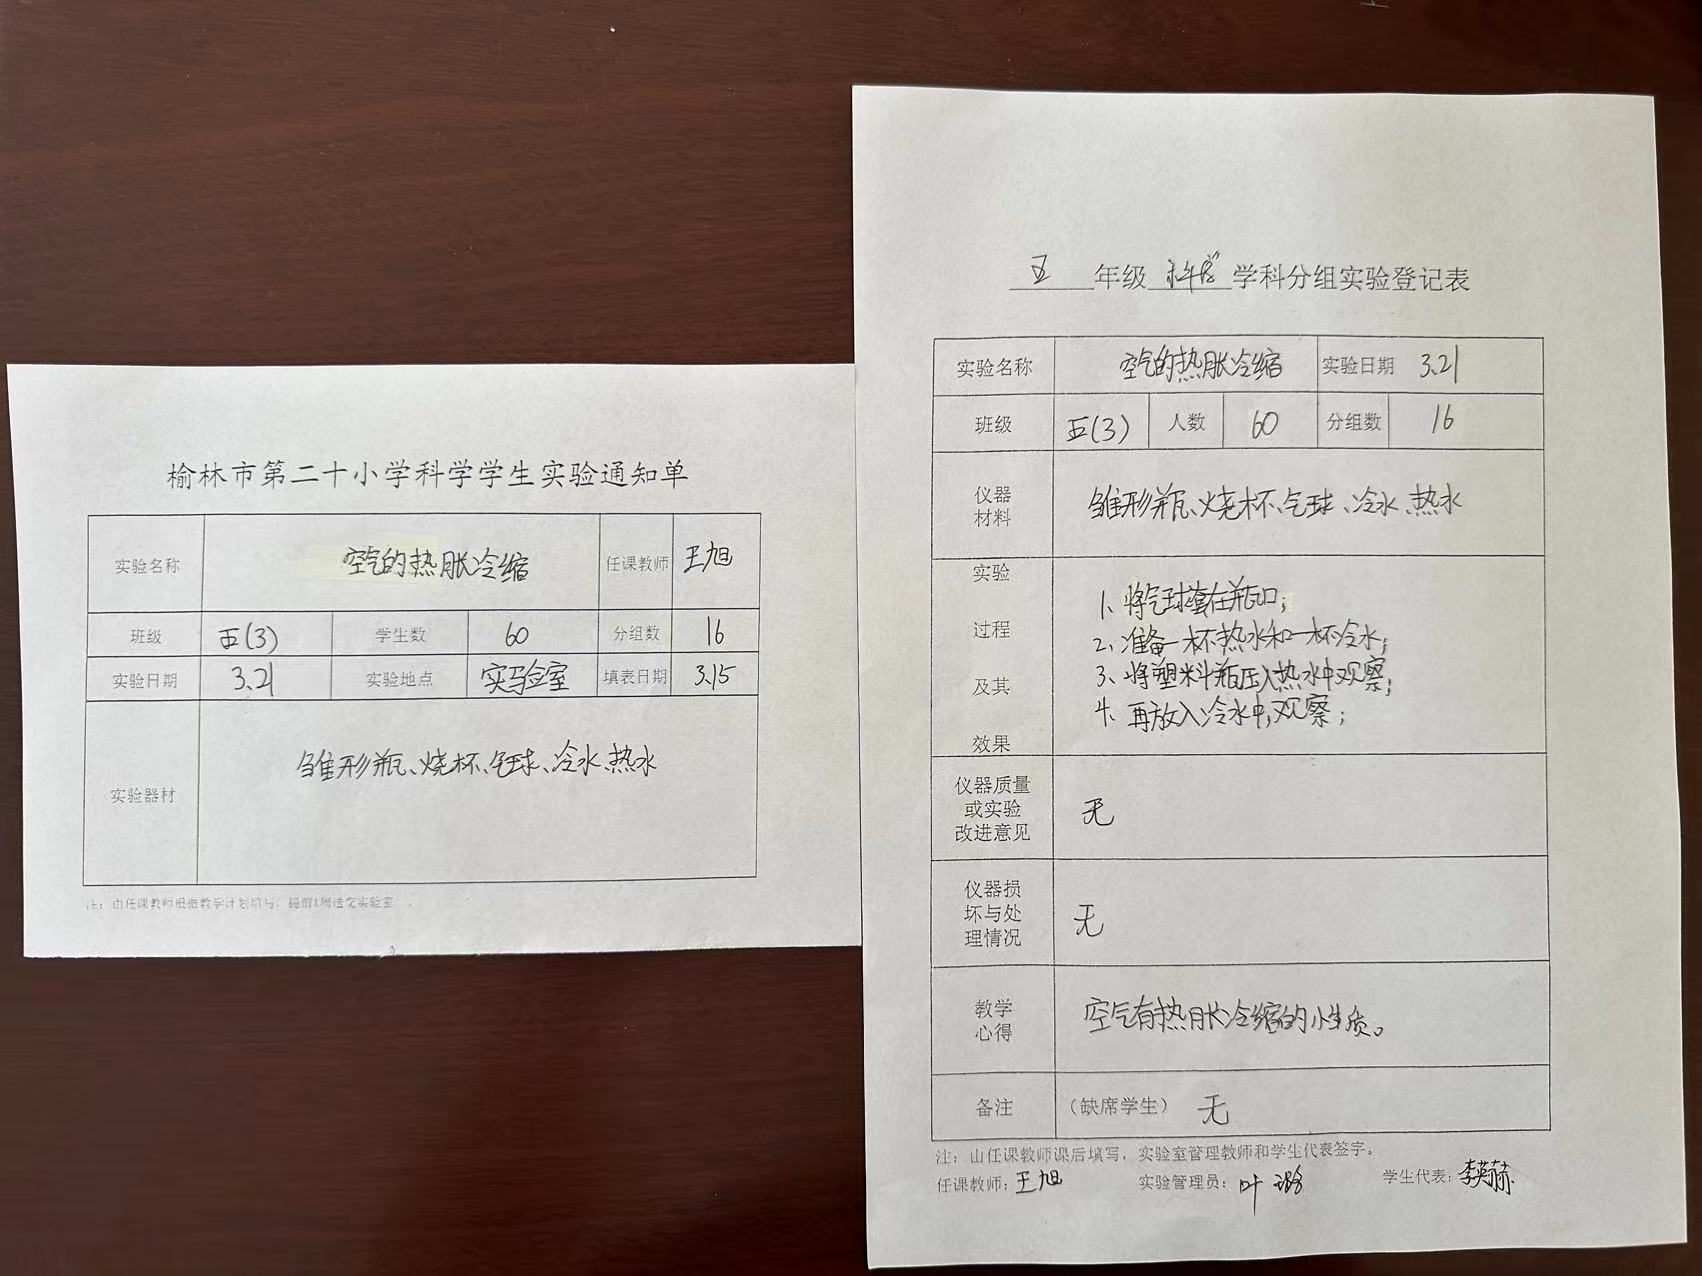 榆林市第二十小学科学学生实验通知单
实验名称 空气的热胀冷缩 任课教师 王旭
班级 五(3) 学生数 60 分组数 16
实验日期 3.21 实验地点 实验室 填表日期 3.15
实验器材 雏形瓶、烧杯、气球、冷水、热水
注：由任课教师根据教学计划填写，提前1周送交实验室。
五 年级 科学 学科分组实验登记表
实验名称 空气的热胀冷缩 实验日期 3.21
班级 五(3) 人数 60 分组数 16
仪器
材料
雏形瓶、烧杯、气球、冷水、热水
实验
过程
及其
效果
1、将气球套在瓶口；
2、准备一杯热水和一杯冷水；
3、将塑料瓶压入热水中观察；
4、再放入冷水中，观察；
仪器质量
或实验
改进意见
无
仪器损
坏与处
理情况
无
教学
心得
空气有热胀冷缩的性质。
备注 （缺席学生） 无
注：由任课教师课后填写，实验室管理教师和学生代表签字。
任课教师：王旭 实验管理员：叶 学生代表：李英赫